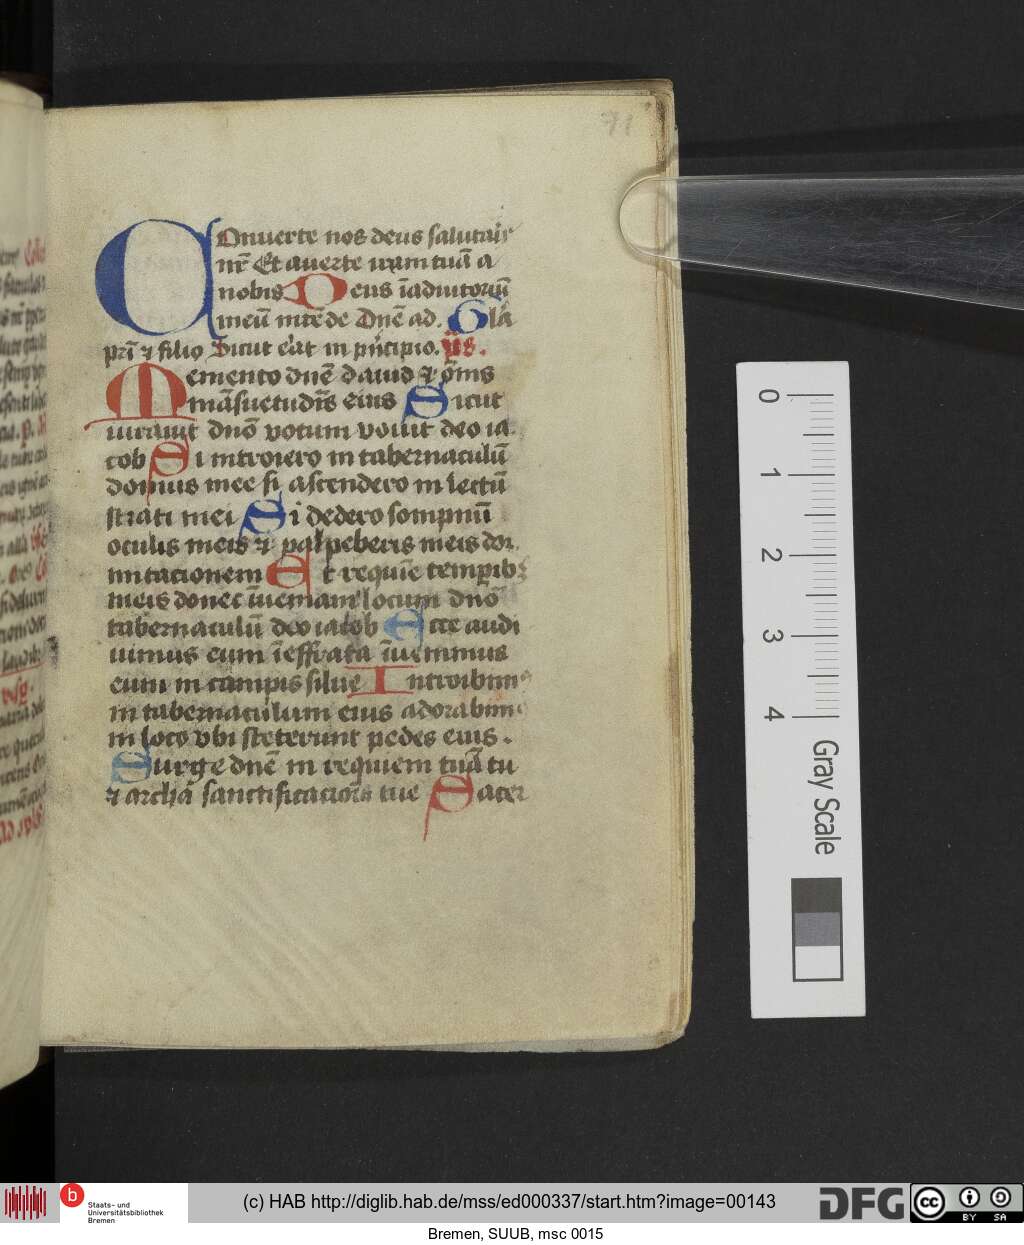 71
Onuerte nos deus salutair
nr̄ Et auerte iram tuā a
nobis Deus īadiutoriū
meū intēde Dnē ad. Glā
pri̅ ⁊ filio Sicut erat in pricipio. ps.
Memento dnē dauid ⁊ oms
māsuetudīs eius Sicut
iurauit dnō votum vouit deo ia
cob Si introiero in tabernaculū
domus mee si ascendero in lectū
strati mei Si dedero sompnū
oculis meis ⁊ palpebris meis dor
mitacionem Et requiē temporib3
meis donec īueniam locum dnō
tabernaculū deo iacob Ecce audi
uimus eum ī effrata īuenimus
eum in campis silue Introibim9
in tabernaculum eius adorabim9
in loco vbi steterunt pedes eius.
Surge dnē in requiem tuā tu
⁊ archa sanctificaciōis tue Sacer
0
1
2
3
4
Gray Scale
b Staats- und
Universitätsbibliothek
Bremen
(c) HAB http://diglib.hab.de/mss/ed000337/start.htm?image=00143
DFG
cc BY SA
Bremen, SUUB, msc 0015